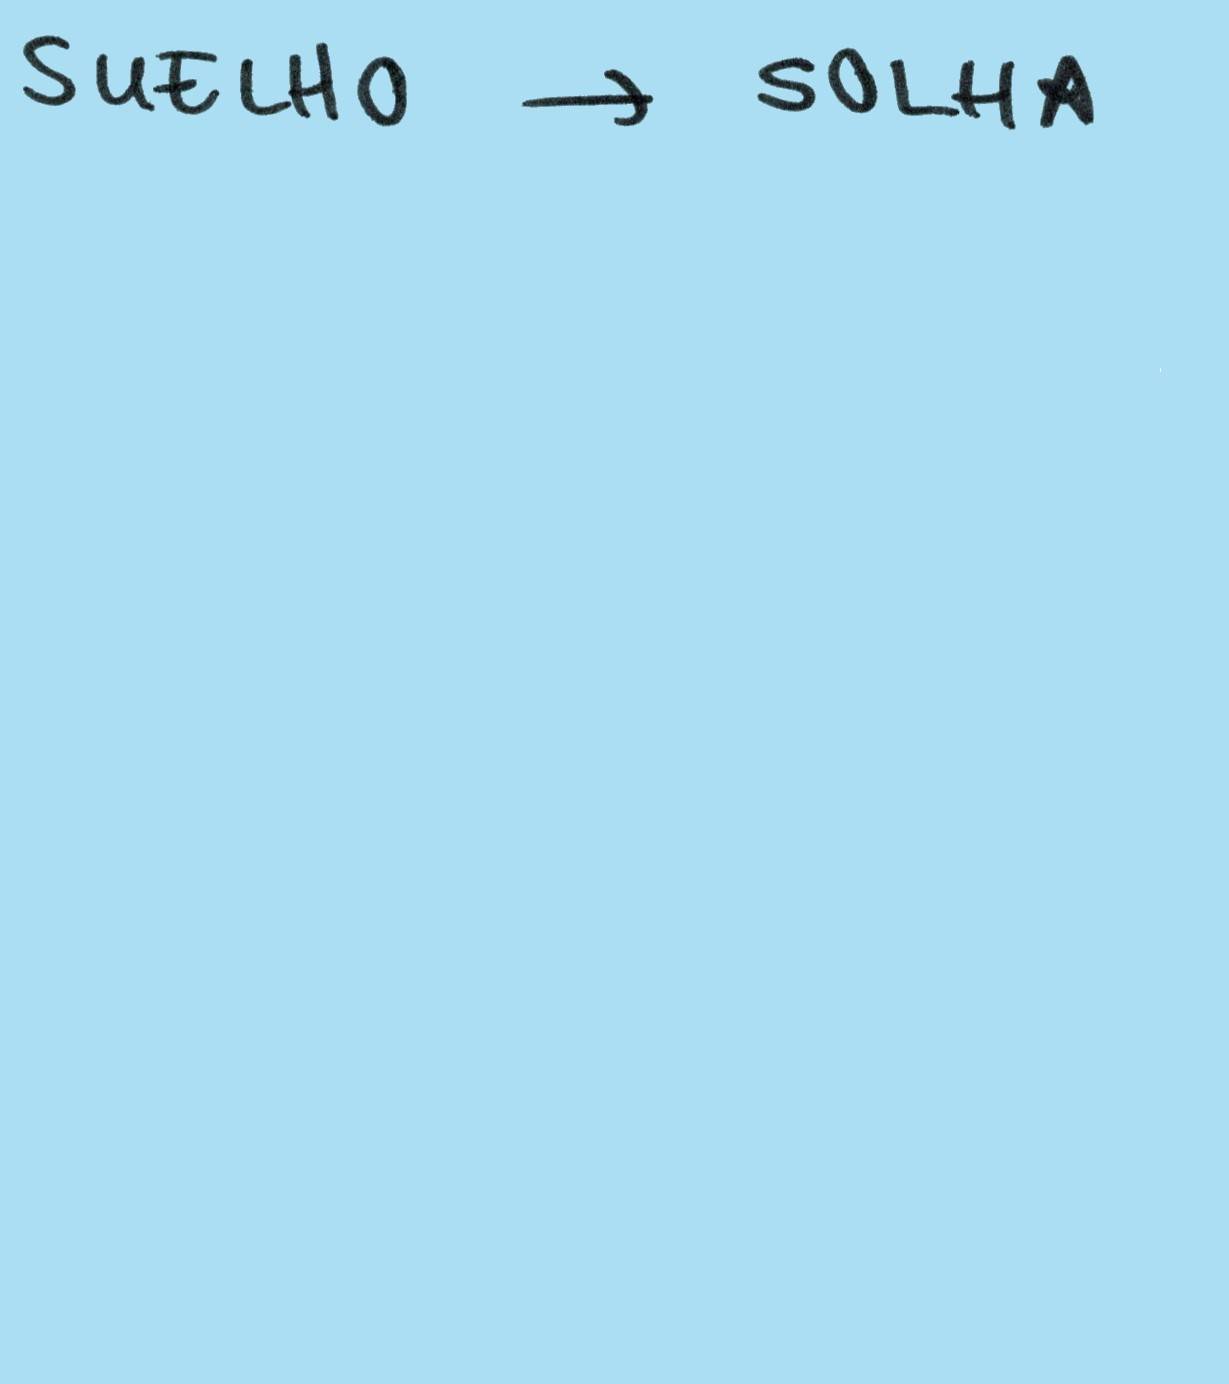 SUELHO → SOLHA